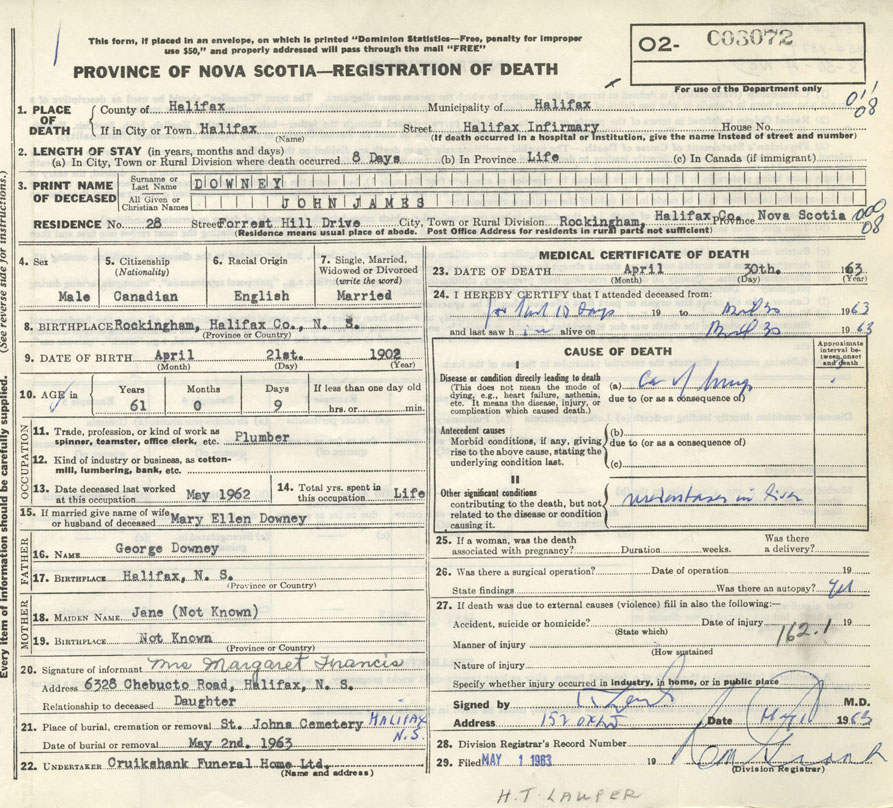 This form, if placed in an envelope, on which is printed "Dominion Statistics—Free, penalty for improper
use $50," and properly addressed will pass through the mail "FREE"
PROVINCE OF NOVA SCOTIA—REGISTRATION OF DEATH
O2- C03072
For use of the Department only
1. PLACE OF DEATH
County of Halifax Municipality of Halifax
If in City or Town Halifax Street Halifax Infirmary House No.
(Name) (If death occurred in a hospital or institution, give the name instead of street and number)
2. LENGTH OF STAY (in years, months and days)
(a) In City, Town or Rural Division where death occurred 8 Days (b) In Province Life (c) In Canada (if immigrant)
3. PRINT NAME OF DECEASED
Surname or Last Name DOWNEY
All Given or Christian Names JOHN JAMES
RESIDENCE No. 28 Street Forrest Hill Drive City, Town or Rural Division Rockingham, Halifax Co. Province Nova Scotia
(Residence means usual place of abode. Post Office Address for residents in rural parts not sufficient)
4. Sex 5. Citizenship (Nationality) 6. Racial Origin 7. Single, Married, Widowed or Divorced (write the word)
Male Canadian English Married
8. BIRTHPLACE Rockingham, Halifax Co., N. S.
(Province or Country)
9. DATE OF BIRTH April 21st. 1902
(Month) (Day) (Year)
10. AGE in Years Months Days If less than one day old
61 0 9 hrs. or min.
OCCUPATION
11. Trade, profession, or kind of work as spinner, teamster, office clerk, etc. Plumber
12. Kind of industry or business, as cotton-mill, lumbering, bank, etc.
13. Date deceased last worked at this occupation May 1962
14. Total yrs. spent in this occupation Life
15. If married give name of wife or husband of deceased Mary Ellen Downey
FATHER
16. NAME George Downey
17. BIRTHPLACE Halifax, N. S.
(Province or Country)
MOTHER
18. MAIDEN NAME Jane (Not Known)
19. BIRTHPLACE Not Known
(Province or Country)
20. Signature of informant Mrs Margaret Francis
Address 6328 Chebucto Road, Halifax, N. S.
Relationship to deceased Daughter
21. Place of burial, cremation or removal St. Johns Cemetery HALIFAX N.S.
Date of burial or removal May 2nd. 1963
22. UNDERTAKER Cruikshank Funeral Home Ltd.
(Name and address)
MEDICAL CERTIFICATE OF DEATH
23. DATE OF DEATH April 30th. 1963
(Month) (Day) (Year)
24. I HEREBY CERTIFY that I attended deceased from:
for last 10 days 19 to 30 1963
and last saw him alive on 30 1963
CAUSE OF DEATH
Approximate interval between onset and death
I
Disease or condition directly leading to death
(This does not mean the mode of dying, e.g., heart failure, asthenia, etc. It means the disease, injury, or complication which caused death.)
(a) Ca of lung
due to (or as a consequence of)
Antecedent causes
Morbid conditions, if any, giving rise to the above cause, stating the underlying condition last.
(b)
due to (or as a consequence of)
(c)
II
Other significant conditions
contributing to the death, but not related to the disease or condition causing it.
metastases in liver
25. If a woman, was the death associated with pregnancy? Duration weeks. Was there a delivery?
26. Was there a surgical operation? Date of operation 19
State findings Was there an autopsy? Yes
27. If death was due to external causes (violence) fill in also the following:—
Accident, suicide or homicide? Date of injury 19
(State which)
162.1
Manner of injury
(How sustained
Nature of injury
Specify whether injury occurred in industry, in home, or in public place
Signed by M.D.
Address Date May 1 1963
28. Division Registrar's Record Number
29. Filed MAY 1 1963 19
(Division Registrar)
H.T. LAWPER
Every item of information should be carefully supplied. (See reverse side for instructions.)